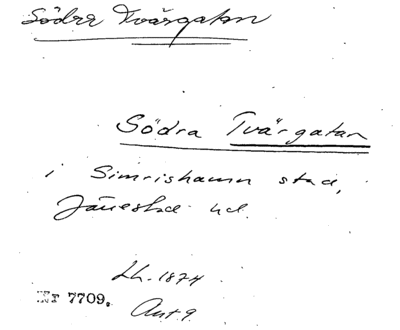 Södra Tvärgatan
Södra Tvärgatan
i Simrishamn stad,
Järrestad hd.
Lh. 1874
Nr 7709.
Ant 9.